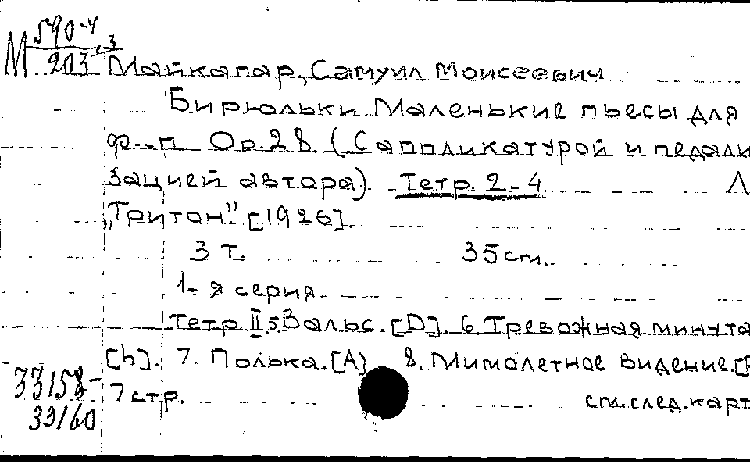 М 590-4
203,3
Майкапар, Самуил Моисеевич
Бирюльки. Маленькие пьесы для
ф.-п. Op. 28 (С аппликатурой и педали
зацией автора). Тетр. 2-4 Л
„Тритон" [1926].
3 т. 35 см.
1-я серия
Тетр II 5. Вальс. [D]. 6. Тревожная минута
[h]. 7. Полька. [A] 8. Мимолетное видение. [F
33158- 7 стр.
33160 см. след. карт